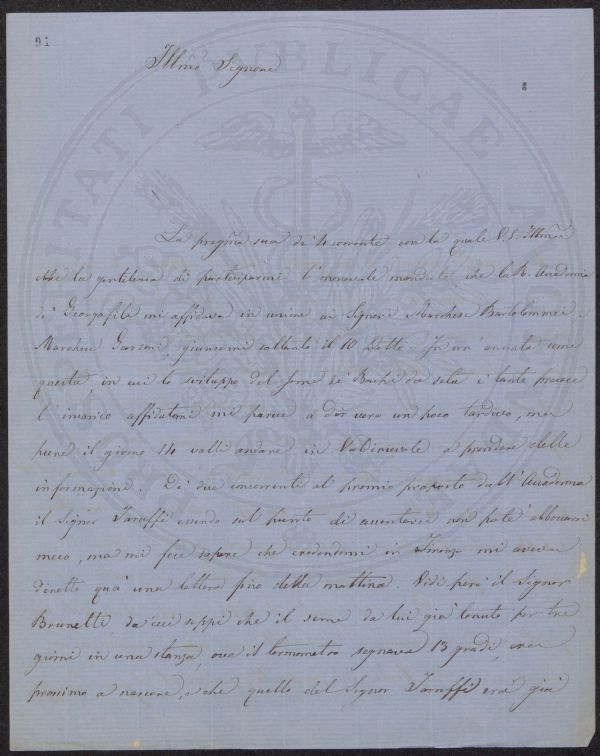 91
Illmo Signore
La pregma sua de' 4 corrente con la quale V.S. Illma
ebbe la gentilezza di parteciparmi l'onorevole mandato, che la R. Accademia
de' Georgofili mi affidava in unione ai Signori Marchese Bartolommei e
Marchese Garzoni, giunsemi soltanto il 10 Detto. In un' annata come
questa, in cui lo sviluppo del seme de' Bachi da seta è tanto precoce
l'incarico affidatomi mi parve a dir vero un poco tardivo, non
pure il giorno 14 volli andare in Valdinievole a prendere delle
informazioni. De' due concorrenti al premio proposto dall' Accademia
il Signor Taruffi essendo sul punto di assentarsi non poté abboccarsi
meco, ma mi fece sapere che credendomi in Firenze mi aveva
diretto quà una lettera fino della mattina. Vidi però il Signor
Brunetti, da cui seppi che il seme da lui già tenuto per tre
giorni in una stanza, ove il termometro segnava 13 gradi, era
prossimo a nascere, e che quello del Signor Taruffi era già